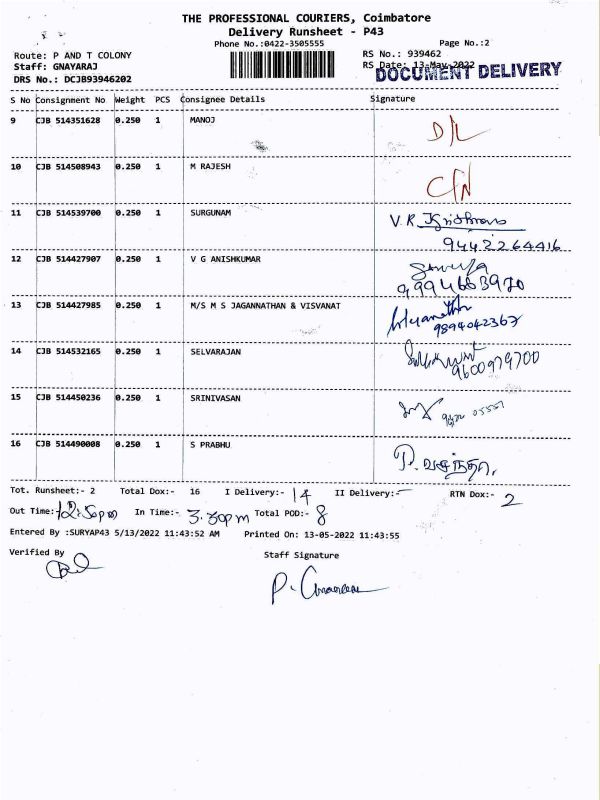 THE PROFESSIONAL COURIERS, Coimbatore
Delivery Runsheet - P43
Phone No.:0422-3505555 Page No.:2
Route: P AND T COLONY RS No.: 939462
Staff: GNAYARAJ RS Date: 13-May-2022
DRS No.: DCJB93946202 DOCUMENT DELIVERY
S No Consignment No Weight PCS Consignee Details Signature
9 CJB 514351628 0.250 1 MANOJ D/L
10 CJB 514508943 0.250 1 M RAJESH
11 CJB 514539700 0.250 1 SURGUNAM V.R.
9442264416
12 CJB 514427907 0.250 1 V G ANISHKUMAR
9994663970
13 CJB 514427985 0.250 1 M/S M S JAGANNATHAN & VISVANAT
9894042367
14 CJB 514532165 0.250 1 SELVARAJAN
9600979700
15 CJB 514450236 0.250 1 SRINIVASAN
16 CJB 514490008 0.250 1 S PRABHU P. வசந்தா.
Tot. Runsheet:- 2 Total Dox:- 16 I Delivery:- 14 II Delivery:- RTN Dox:- 2
Out Time: 12:50pm In Time:- 3.30pm Total POD:- 8
Entered By :SURYAP43 5/13/2022 11:43:52 AM Printed On: 13-05-2022 11:43:55
Verified By Staff Signature